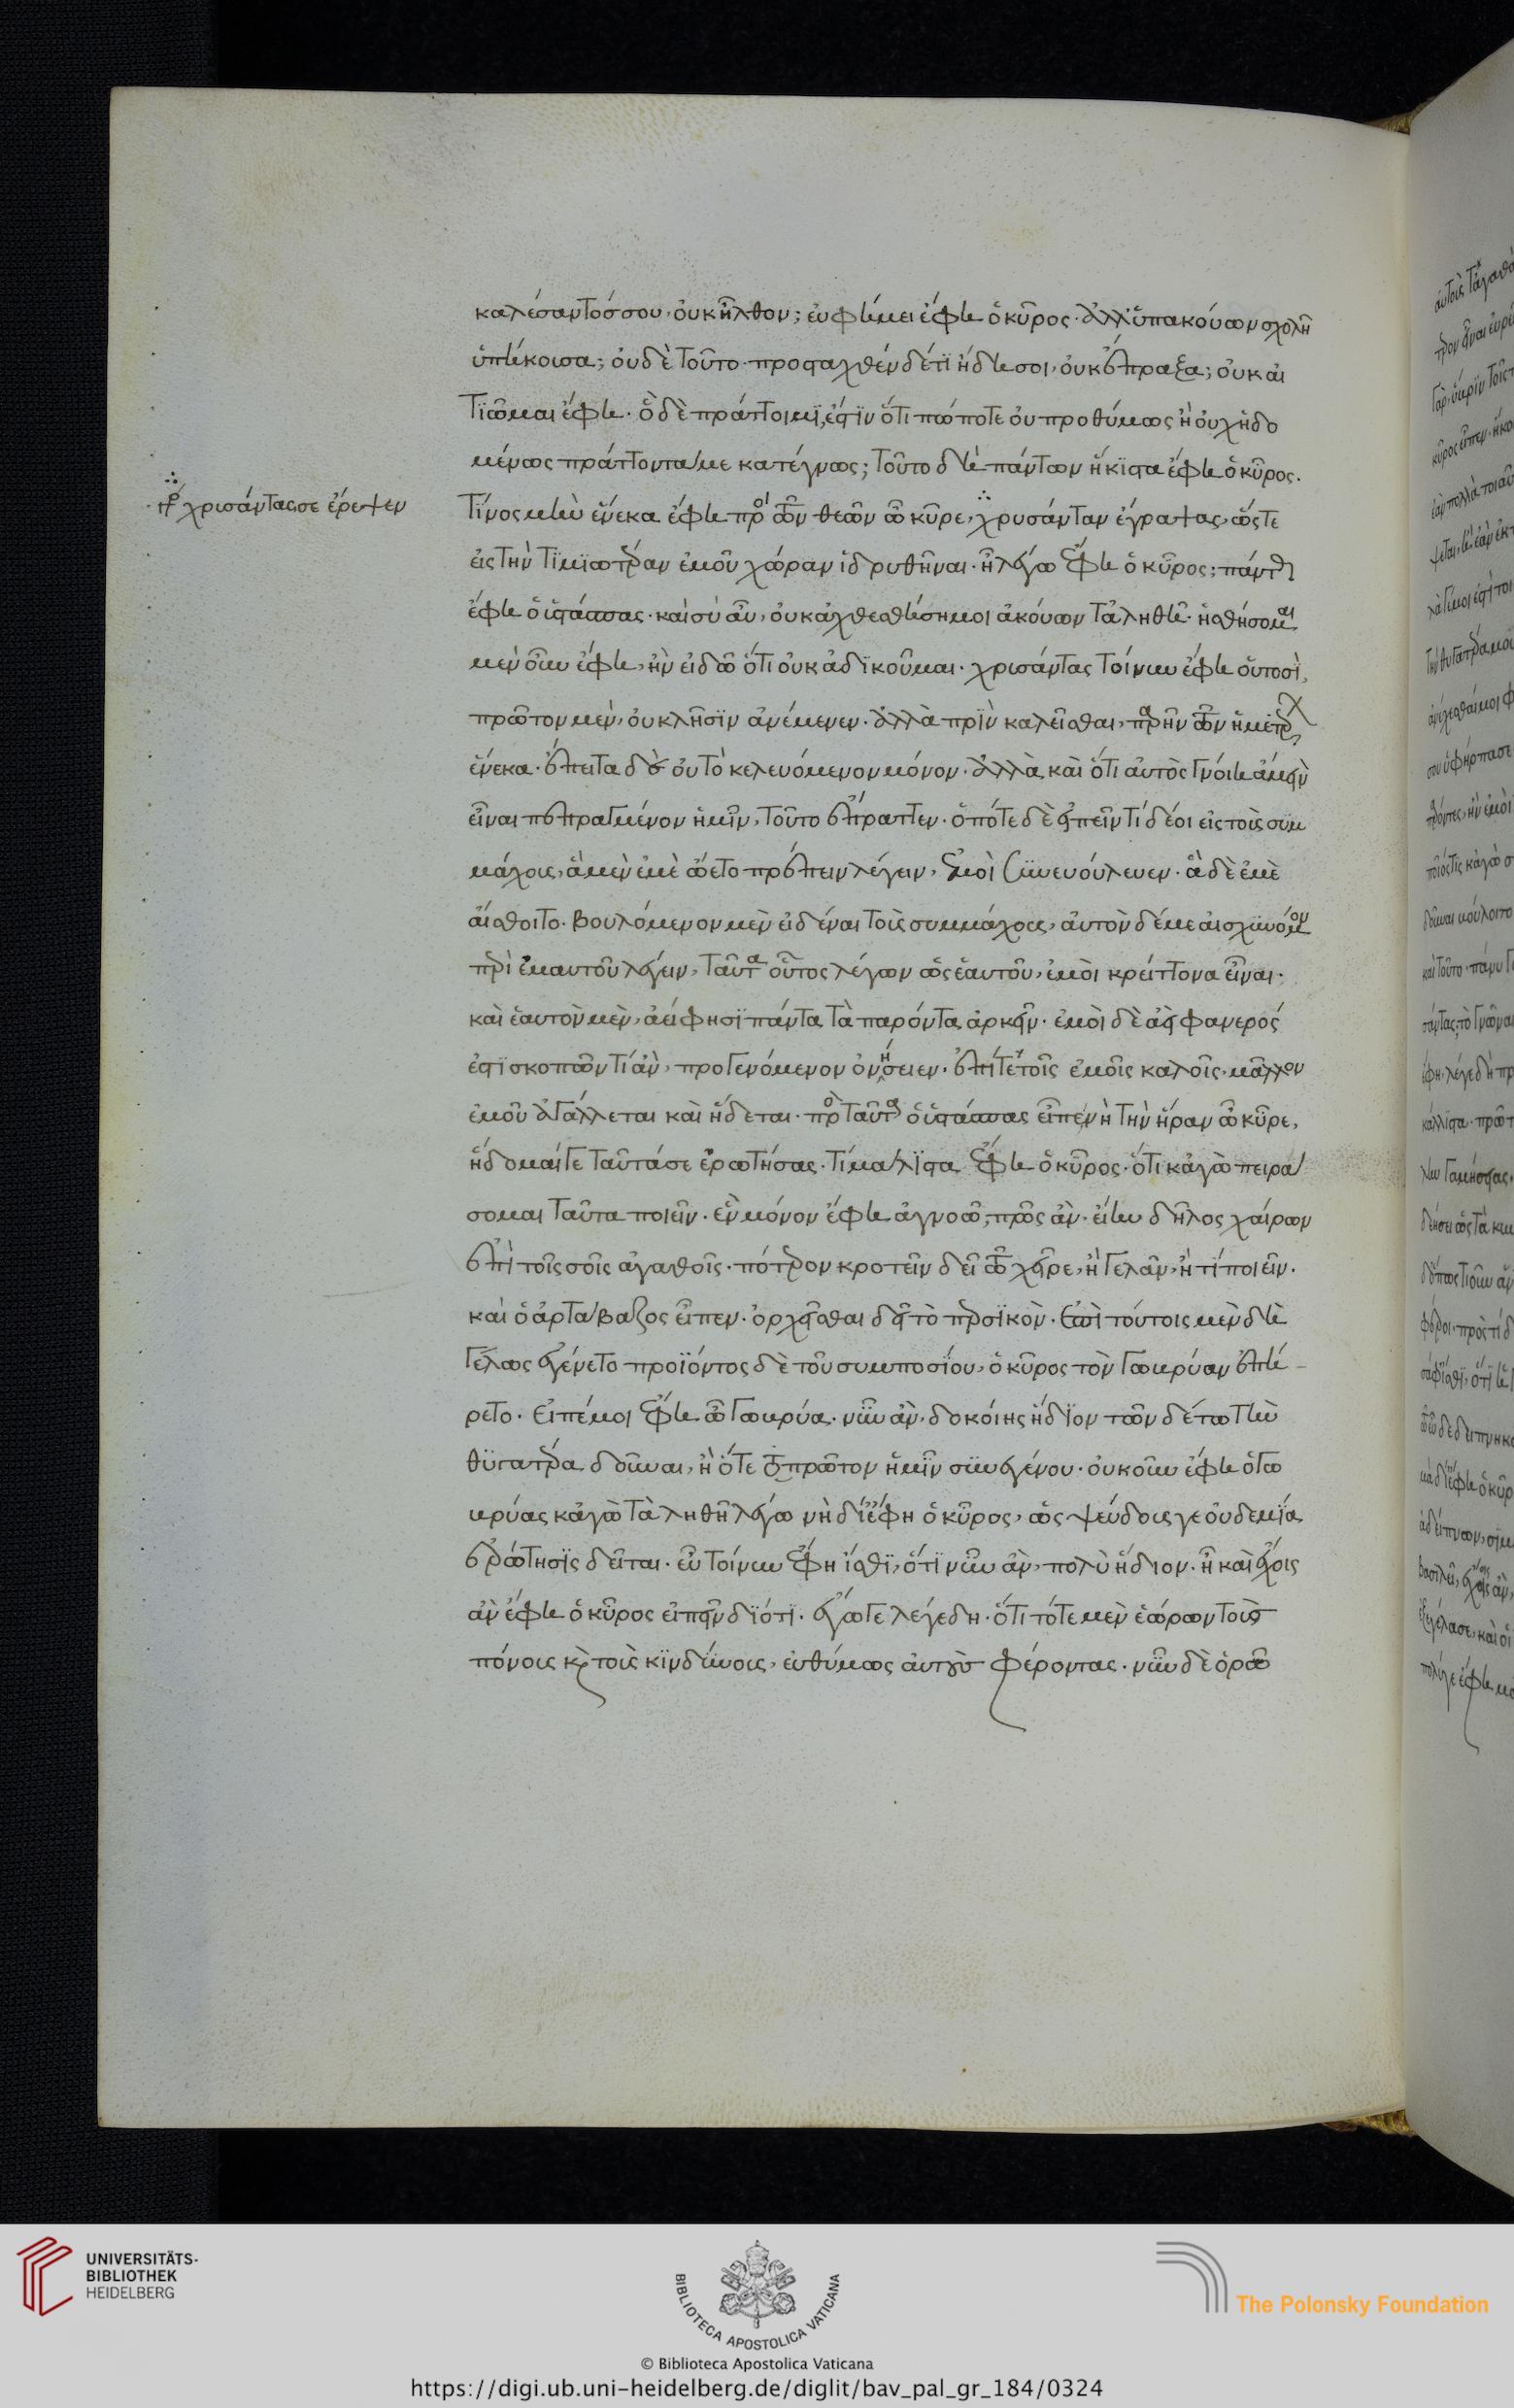 καλέσαντόσσου, οὐκ ἦλθον; ευφήμει ἔφη ὁ κῦρος. ἀλλ' ὑπακούων σχολῆ
ὑπήκουσα; οὐδὲ τοῦτο. προσταχθὲν δέ τι ἤδη σοι, οὐκ ἔπραξα; οὐκ αι
τιῶμαι ἔφη. ὃ δὲ πράττοιμι, ἔστιν ὅτι πώποτε οὐ προθύμως ἢ οὐχ ἡδο
μένως πράττοντά με κατέγνως; τοῦτο δὴ πάντων ἥκιστα ἔφη ὁ κῦρος.
τίνος μὴν ἕνεκα ἔφη πρὸς τῶν θεῶν ὦ κῦρε, χρυσάνταν ἔγραψας, ὥστε
εἰς τὴν τιμιωτέραν ἐμοῦ χώραν ἱδρυθῆναι. ἦ λέγω ἔφη ὁ κῦρος; πάντως
ἔφη ὁ ὑστάσπας. καὶ σὺ αὖ, οὐκ ἀχθεσθήσῃ μοι ἀκούων τἀληθῆ. ἡσθήσομαι
μὲν οὖν ἔφη, ἢν εἰδῶ ὅτι οὐκ ἀδικοῦμαι. χρισάντας τοίνυν ἔφη οὑτοσὶ,
πρῶτον μὲν, οὐ κλῆσιν ἀνέμενεν. ἀλλὰ πρὶν καλεῖσθαι, παρῆν τῶν ἡμετέρων
ἕνεκα. ἔπειτα δὲ οὐ τὸ κελευόμενον μόνον. ἀλλὰ καὶ ὅτι αὐτὸς γνοίη ἄμεινον
εἶναι πεπραγμένον ἡμῖν, τοῦτο ἔπραττεν. ὁπότε δὲ εἰπεῖν τί δέοι εἰς τοὺς συμ
μάχους, ἃ μὲν ἐμὲ ᾤετο πρέπειν λέγειν, ἐμοὶ συνεβούλευεν. ἃ δὲ ἐμὲ
αἴσθοιτο. βουλόμενον μὲν εἰδέναι τοὺς συμμάχους, αὐτὸν δέ με αἰσχυνόμενον
περὶ ἐμαυτοῦ λέγειν, ταῦτα οὗτος λέγων ὡς ἑαυτοῦ, ἐμοὶ κρείττονα εἶναι.
καὶ ἑαυτὸν μὲν, ἀεί φησι πάντα τὰ παρόντα ἀρκεῖν. ἐμοὶ δὲ ἀεὶ φανερός
ἐστι σκοπῶν τί ἂν, προγενόμενον ὀνήσειεν. ἐπί τε τοῖς ἐμοῖς καλοῖς, μᾶλλον
ἐμοῦ ἀγάλλεται καὶ ἥδεται. πρὸς ταῦτα ὁ ὑστάσπας εἶπεν ἢ τὴν ἥραν ὦ κῦρε,
ἥδομαί γε ταῦτά σε ἐρωτήσας. τί μάλιστα ἔφη ὁ κῦρος. ὅτι κἀγὼ πειρά
σομαι ταῦτα ποιεῖν. ἓν μόνον ἔφη ἀγνοῶ, πρῶς ἂν. εἴην δῆλος χαίρων
ἐπὶ τοῖς σοῖς ἀγαθοῖς. πότερον κροτεῖν δεῖ τῶ χεῖρε, ἢ γελᾶν, ἢ τί ποιεῖν.
καὶ ὁ ἀρτάβαζος εἶπεν. ὀρχεῖσθαι δεῖ τὸ περσικὸν. ἐπὶ τούτοις μὲν δὴ
γέλως ἐγένετο προϊόντος δὲ τοῦ συμποσίου, ὁ κῦρος τὸν γωβρύαν ἐπή
ρετο. εἰπέ μοι ἔφη ὦ γωβρύα. νῦν ἂν, δοκοίης ἥδιον τῶν δέ τω τὴν
θυγατέρα δοῦναι, ἢ ὅτε τὸ πρῶτον ἡμῖν συνεγένου. οὐκοῦν ἔφη ὁ γω
βρύας κἀγὼ τἀληθῆ λέγω νὴ δί' ἔφη ὁ κῦρος, ὡς ψεύδους γε οὐδεμία
ἐρώτησις δεῖται. εὖ τοίνυν ἔφη ἴσθι, ὅτι νῦν ἂν, πολὺ ἥδιον. ἦ καὶ ἔχοις
ἂν ἔφη ὁ κῦρος εἰπεῖν διότι. ἔγωγε λέγε δὴ. ὅτι τότε μὲν ἑώρων τοὺς
πόνους καὶ τοὺς κινδύνους, εὐθύμως αὐτοὺς φέροντας. νῦν δὲ ὁρῶ
γρ χρισάντας σε ἔρεψεν
UNIVERSITÄTS-
BIBLIOTHEK
HEIDELBERG
BIBLIOTECA APOSTOLICA VATICANA
The Polonsky Foundation
© Biblioteca Apostolica Vaticana
https://digi.ub.uni-heidelberg.de/diglit/bav_pal_gr_184/0324